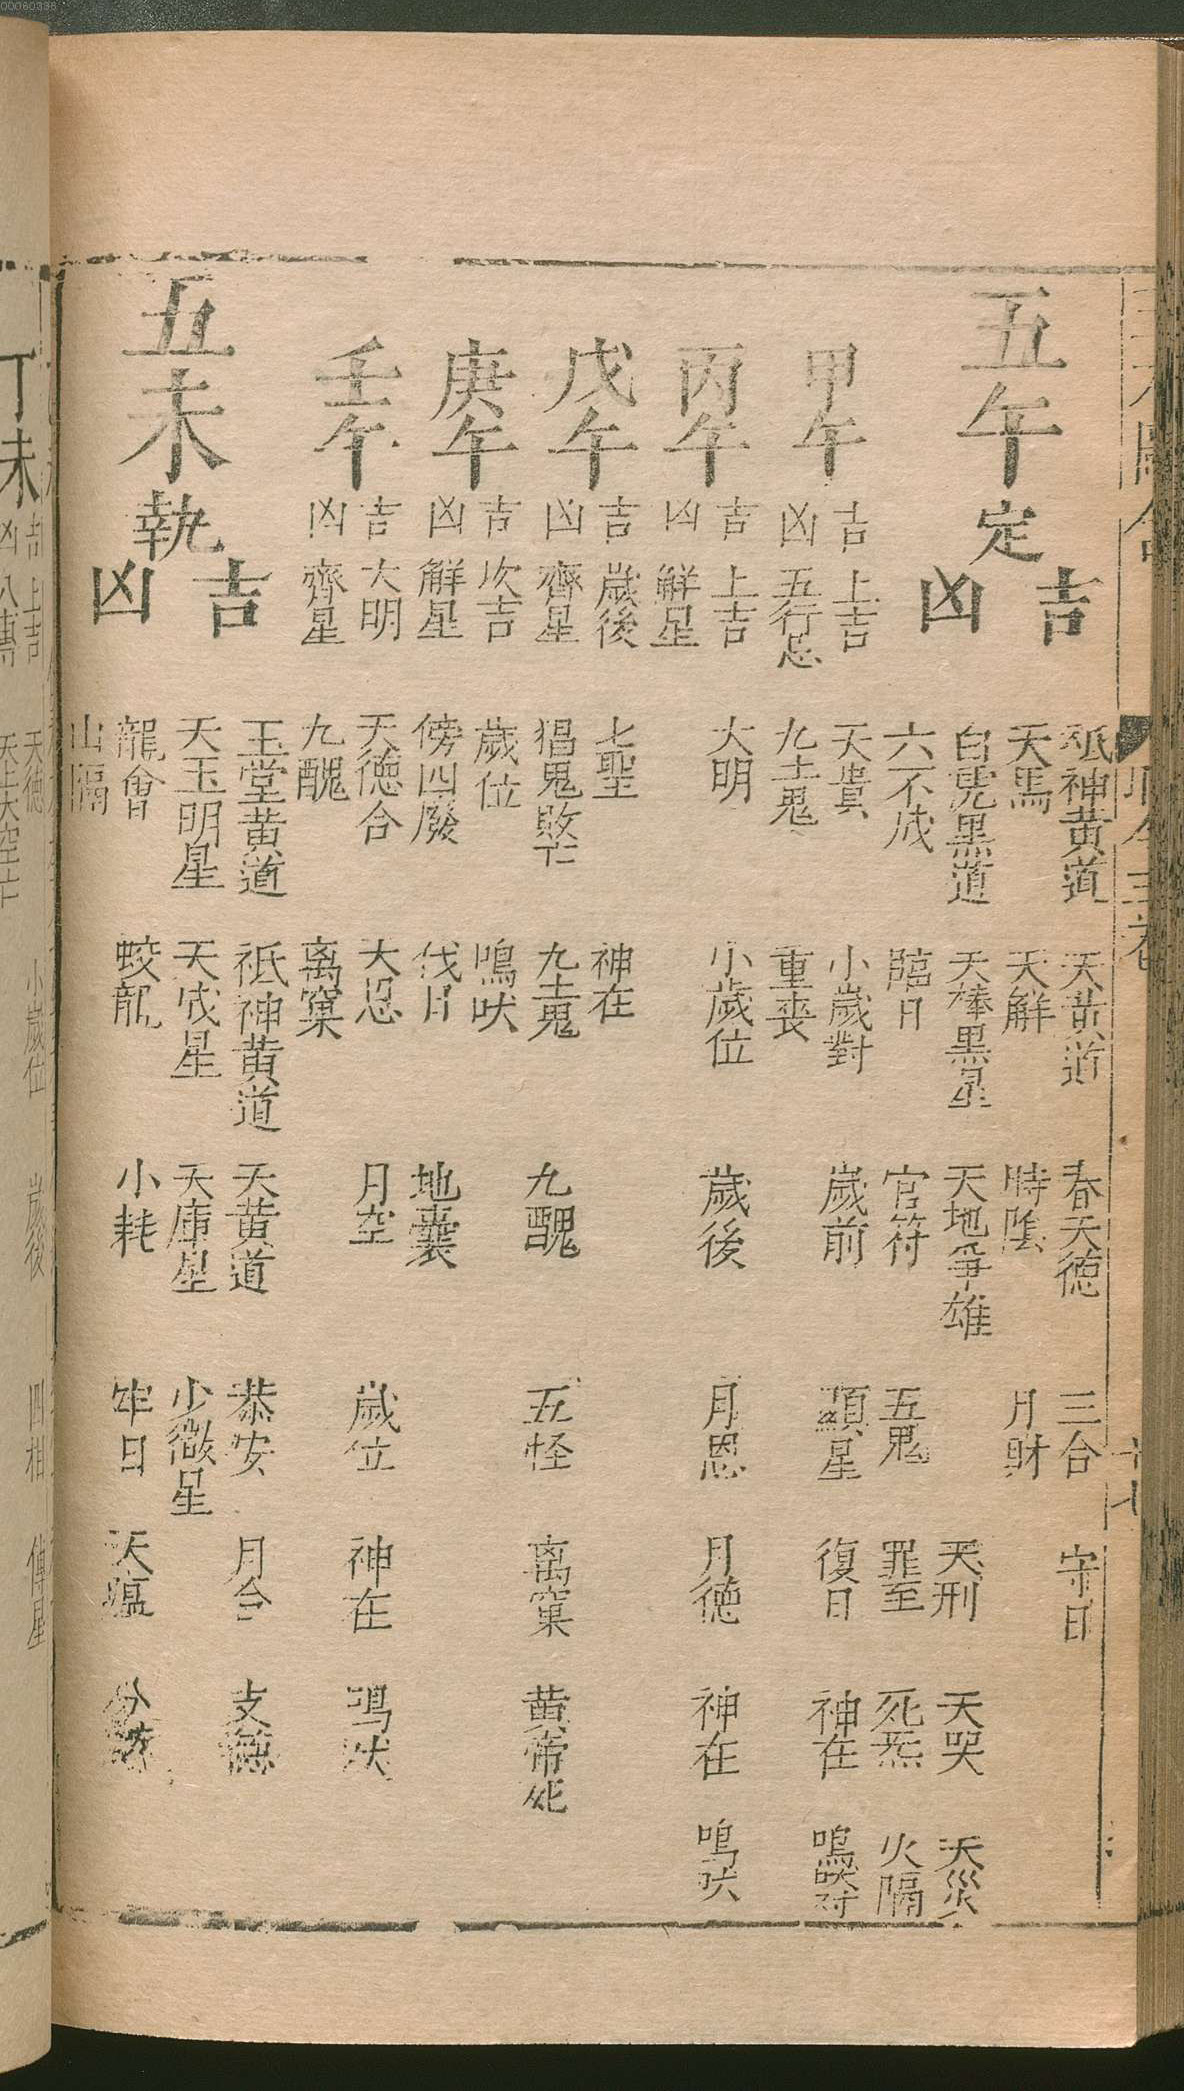 五午定
吉 祗神黄道 天黄道 春天德 三合 守日
天馬 天解 時陰 月財
凶 白虎黑道 天棒黑星 天地爭雄 天刑 天哭 天災
六不成 臨日 官符 五鬼 罪至 死炁 火隔
甲午 吉 上吉 天貴 小歲對 歲前 顯星 復日 神在 鳴吠對
凶 五行忌 九土鬼 重喪
丙午 吉 上吉 大明 小歲位 歲後 月恩 月德 神在 鳴吠
凶 解星
戊午 吉 歲後 七聖 神在
凶 齊星 猖鬼敗亡 九土鬼 九醜 五怪 离窠 黄帝死
庚午 吉 次吉 歲位 鳴吠
凶 解星 傍四廢 伐日 地囊
壬午 吉 大明 天德合 大恩 月空 歲位 神在 鳴吠
凶 齊星 九醜 离窠
五未執
吉 玉堂黄道 祗神黄道 天黄道 恭安 月合 支德
天玉明星 天成星 天庫星 少微星
凶 龍會 蛟龍 小耗 牢日 天瘟
山隔
丁未 吉 上吉 天德 小歲位 歲後 四相 傳星
凶 八專
00060336